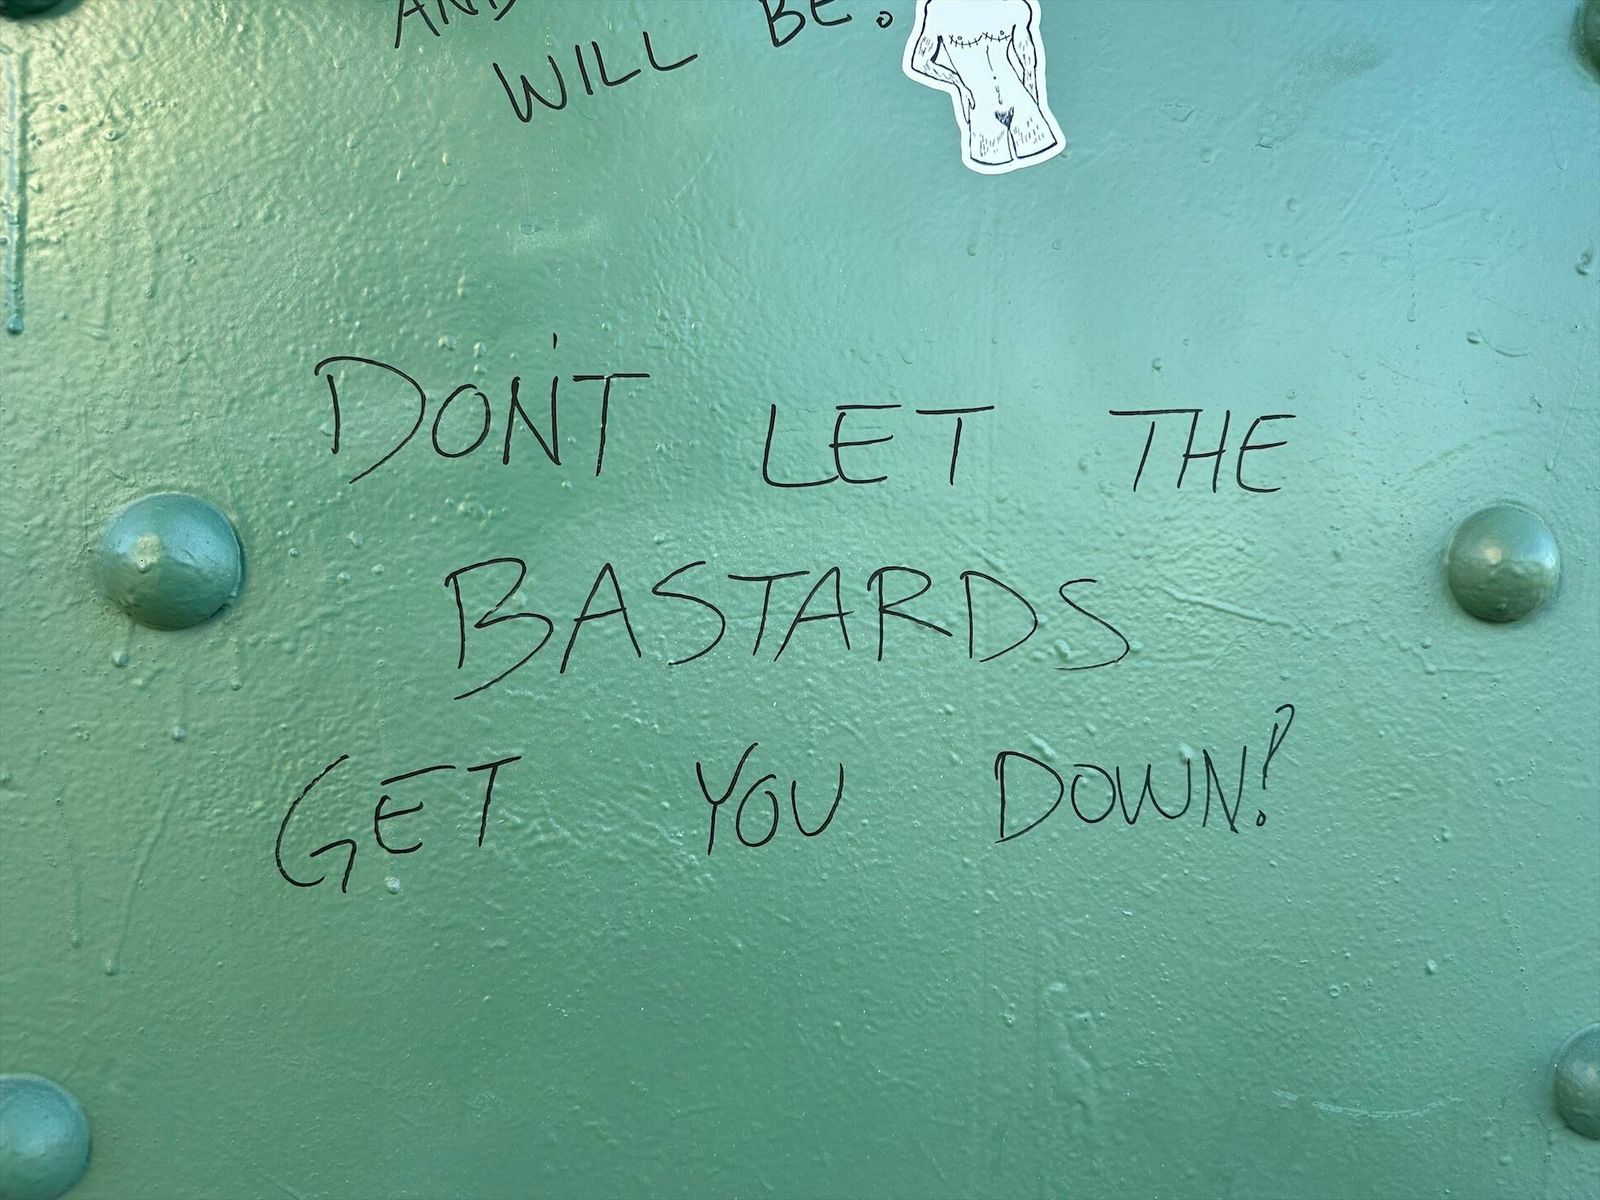 AND
WILL BE.
DON'T LET THE
BASTARDS
GET YOU DOWN!